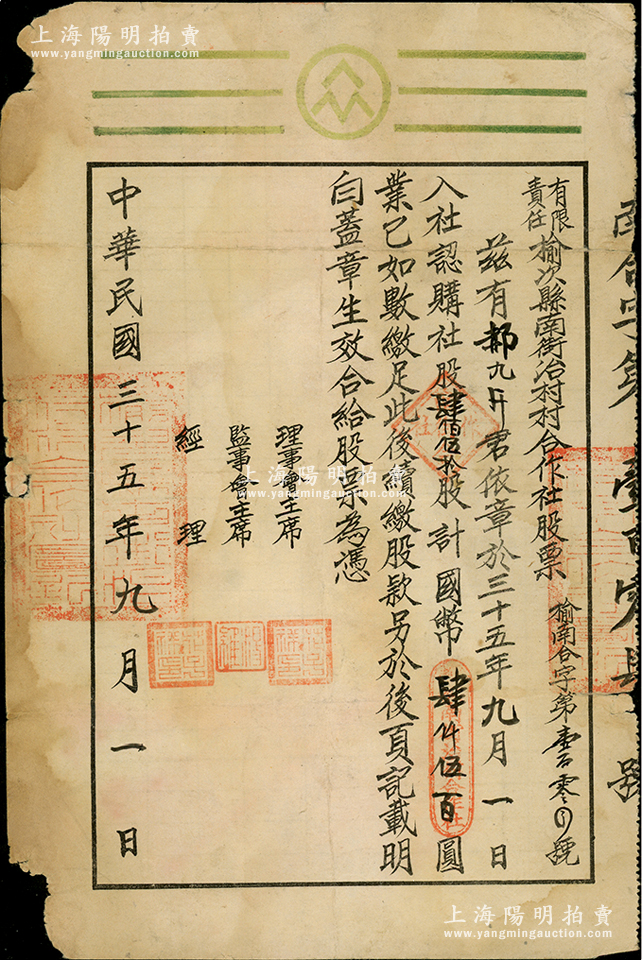 上海陽明拍賣
www.yangmingauction.com
有限責任榆次縣南街治村村合作社股票 榆南合字第壹百零
號
茲有郝九升君依章於三十五年九月一日
入社認購社股肆佰伍拾股計國幣肆仟伍百圓
業已如數繳足此後續繳股款另於後頁記載明
白蓋章生效合給股票為憑
理事會主席
監事會主席
經理
中華民國三十五年九月一日
上海陽明拍賣
www.yangmingauction.com
上海陽明拍賣
www.yangmingauction.com